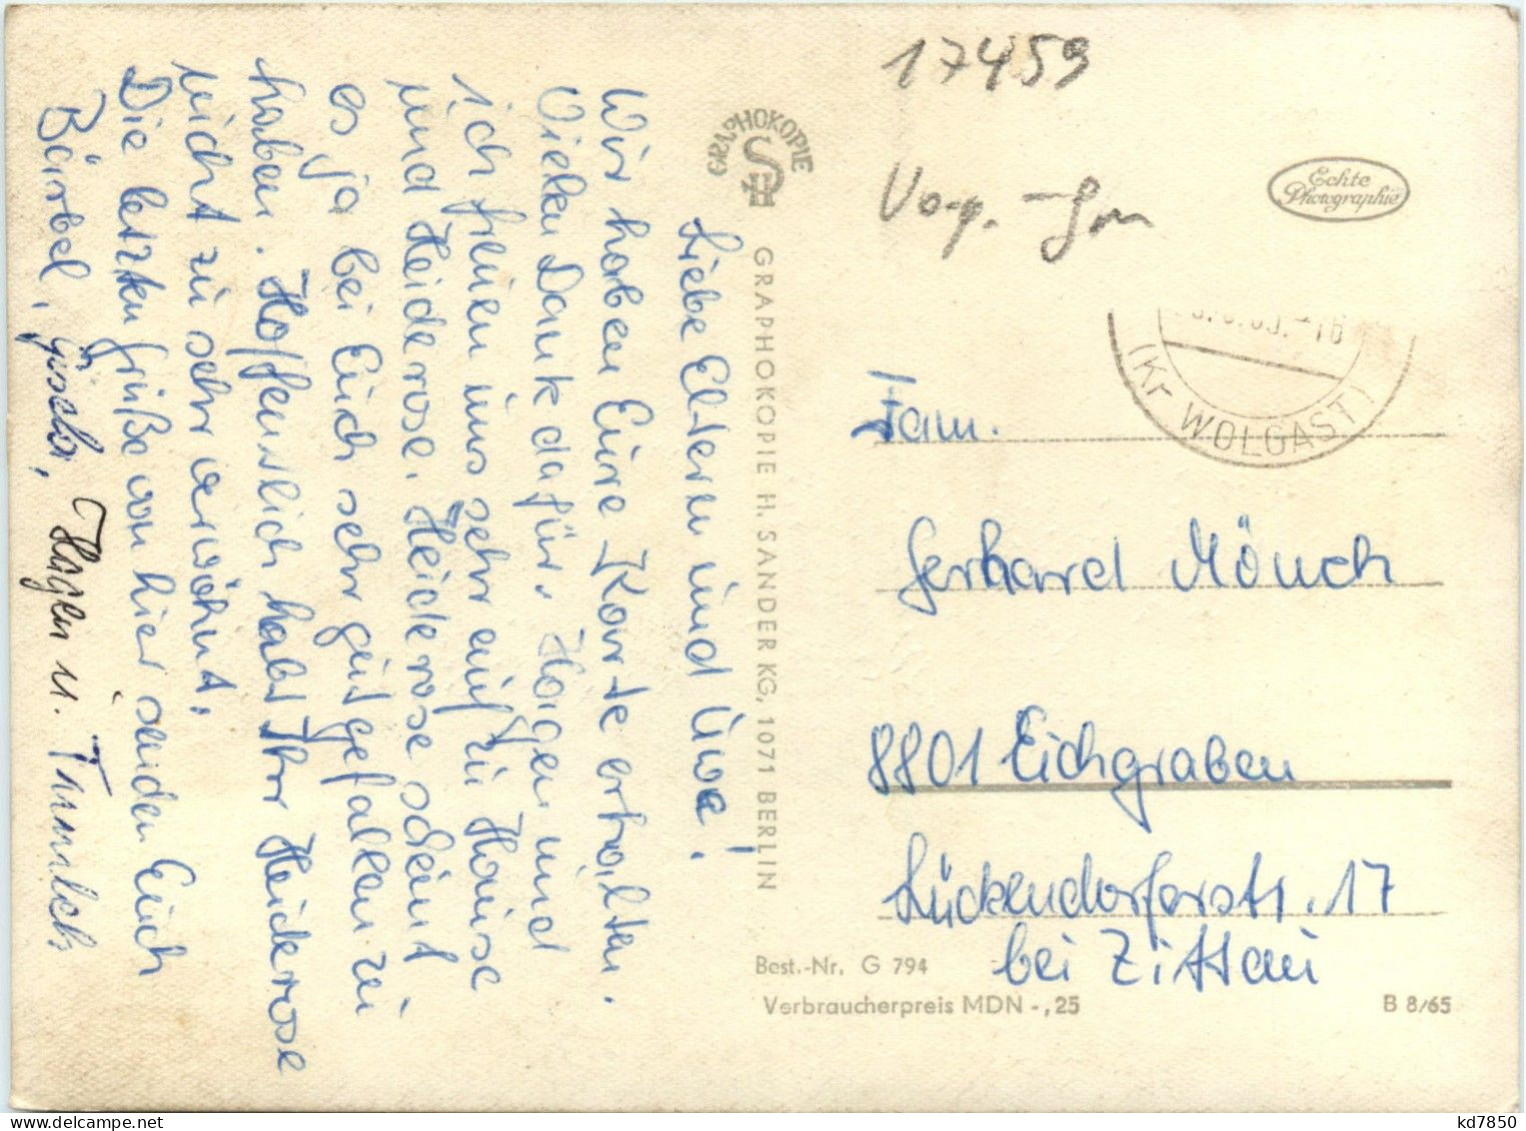 Liebe Eltern und Uwe!
Wir haben Eure Karte erhalten.
Vielen Dank dafür. Hagen und
ich freuen uns sehr auf zu Hause
und Heiderose. Heiderose scheint
es ja bei Euch sehr gut gefallen zu
haben. Hoffentlich habt Ihr Heiderose
nicht zu sehr verwöhnt.
Die letzten Grüße von hier senden Euch
Bärbel, Gisela, Hagen u.
GRAPHOKOPIE
GRAPHOKOPIE H. SANDER KG, 1071 BERLIN
17459
Echte
Photographie
-16
(Kr WOLGAST)
Fam.
Gerhard Mönch
8801 Eichgraben
Lückendorferstr. 17
bei Zittau
Best.-Nr. G 794
Verbraucherpreis MDN -,25
B 8/65
kd7850